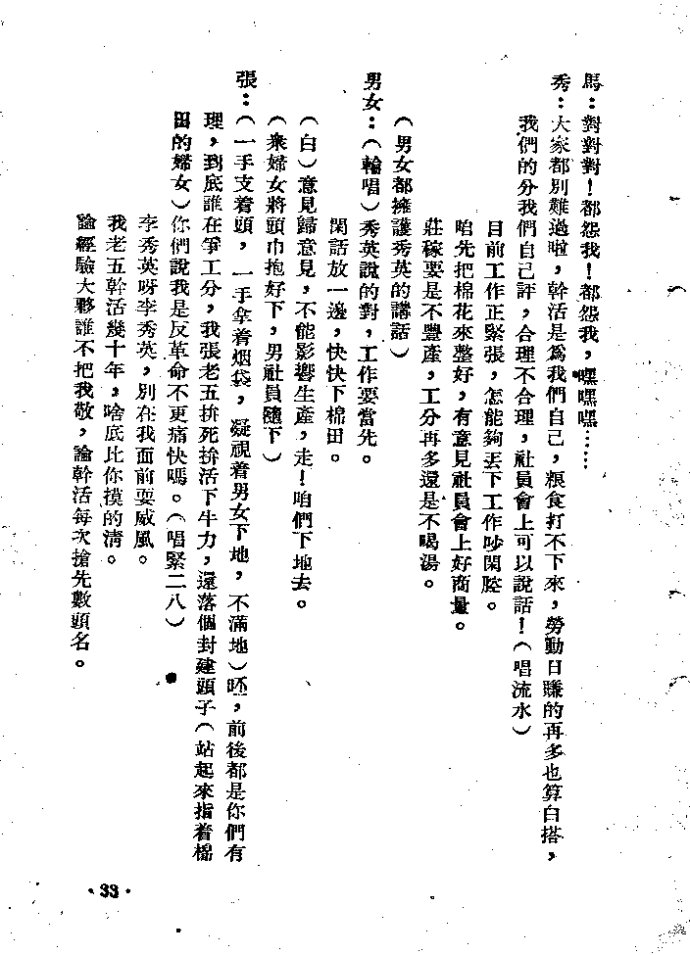 馬：對對對！都怨我！都怨我，嘿嘿嘿……
秀：大家都別難過啦，幹活是爲我們自己，粮食打不下來，勞動日賺的再多也算白搭，
我們的分我們自己評，合理不合理，社員會上可以說話！（唱流水）
目前工作正緊張，怎能夠丟下工作吵閑腔。
咱先把棉花來整好，有意見社員會上好商量。
莊稼要是不豐產，工分再多還是不喝湯。
（男女都擁護秀英的講話）
男女：（輪唱）秀英說的對，工作要當先。
閑話放一邊，快快下棉田。
（白）意見歸意見，不能影響生產，走！咱們下地去。
（衆婦女將頭巾抱好下，男社員隨下）
張：（一手支着頭，一手拿着烟袋，凝視着男女下地，不滿地）呸，前後都是你們有
理，到底誰在爭工分，我張老五拚死拚活下牛力，還落個封建頭子（站起來指着棉
田的婦女）你們說我是反革命不更痛快嗎。（唱緊二八）
李秀英呀李秀英，別在我面前耍威風。
我老五幹活幾十年，啥底比你摸的清。
論經驗大夥誰不把我敬，論幹活每次搶先數頭名。
·33·